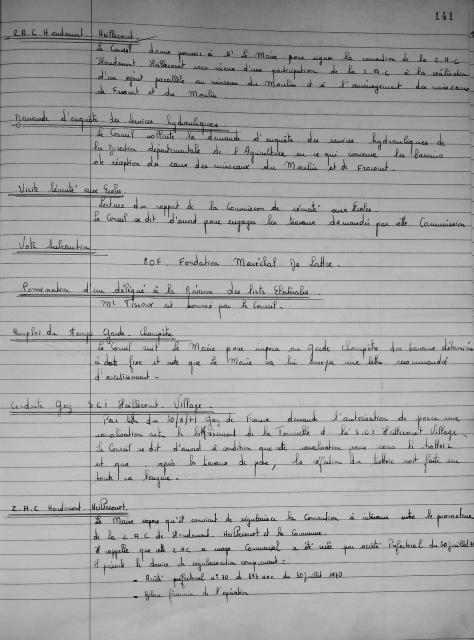 141
Z.A.C Houdemont. Heillecourt
Le Conseil donne pouvoir à Mr Le Maire pour signer la convention de la Z.A.C
Houdemont Heillecourt sous réserve d'une participation de la Z.A.C à la réalisation
d'un égout parallèle au ruisseau du Moulin et à l'aménagement des ruisseaux
de et du Moulin
Demande d'enquête des services hydrauliques
Le Conseil sollicite la demande d'enquête des services hydrauliques de
la Direction départementale de l'Agriculture en ce qui concerne les bassins
de réception des eaux des ruisseaux du Moulin et de
Visite Sécurité aux Ecoles.
Lecture d'un rapport de la Commission de sécurité aux Ecoles.
Le Conseil se dit d'accord pour engager les travaux demandés par cette Commission
Vote Subvention
80F. Fondation Maréchal De Lattre.
Nomination d'un délégué à la Révision des listes Electorales
Mr est nommé par le Conseil.
Emploi du temps Garde-Champêtre
Le Conseil suit le Maire pour imposer au garde champêtre des travaux déterminés
à date fixe et note que Le Maire va lui envoyer une lettre recommandée
d'avertissement.
Conduite Gaz S.C.I Heillecourt. Village.
Par lettre du 10/6/71 Gaz de France demande l'autorisation de poser une
canalisation entre le lotissement de la Tournelle et la S.C.I Heillecourt. Village.
Le Conseil se dit d'accord à condition que cette canalisation passe sous le trottoir
et que après les travaux de pose, la réfection du trottoir soit faite sur
toute sa largeur.
Z.A.C Houdemont. Heillecourt.
Le Maire expose qu'il convient de régulariser la Convention à intervenir entre le promoteur
de la Z.A.C de Houdemont. Heillecourt et la Commune.
Il rappelle que cette ZAC a usage Communal a été créée par arrêté Préfectoral du 30 juillet
Il présente le dossier de régularisation comprenant:
- Arrêté préfectoral n° du 30 juillet 1970
- Bilan financier de l'opération